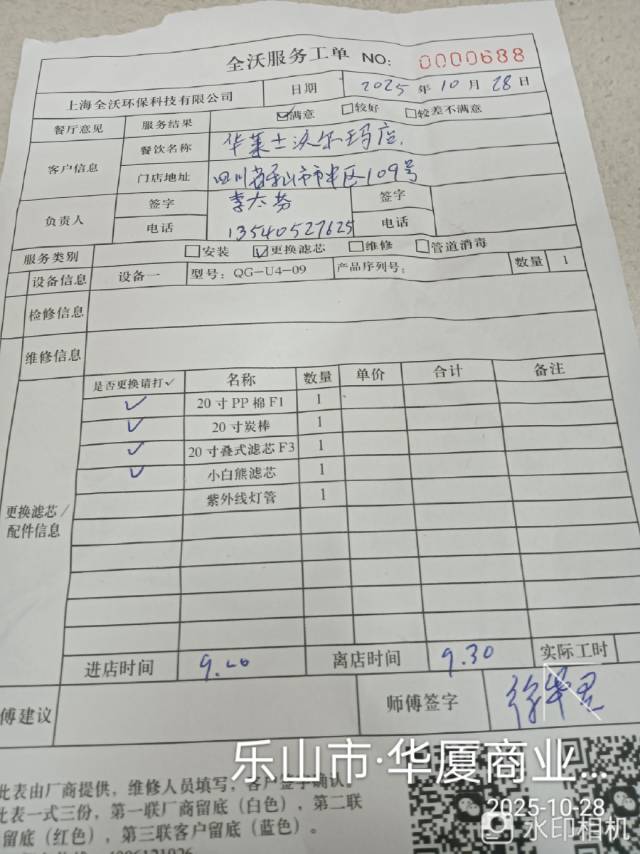 全沃服务工单 NO: 0000688
上海全沃环保科技有限公司 日期 2025 年 10 月 28 日
餐厅意见 服务结果 ☑满意 □较好 □较差不满意
客户信息 餐饮名称 华莱士沃尔玛店
门店地址 四川省乐山市市中区109号
负责人 签字 签字
电话 13540527625 电话
服务类别 □安装 ☑更换滤芯 □维修 □管道消毒
设备信息 设备一 型号: QG-U4-09 产品序列号: 数量 1
检修信息
维修信息
更换滤芯/配件信息 是否更换请打✓ 名称 数量 单价 合计 备注
✓ 20寸PP棉F1 1
✓ 20寸炭棒 1
✓ 20寸叠式滤芯F3 1
✓ 小白熊滤芯 1
紫外线灯管 1
进店时间 离店时间 9.30 实际工时
傅建议 师傅签字
此表由厂商提供，维修人员填写，客户签字确认。
此表一式三份，第一联厂商留底（白色），第二联
留底（红色），第三联客户留底（蓝色）。
乐山市·华厦商业...
2025-10-28
水印相机